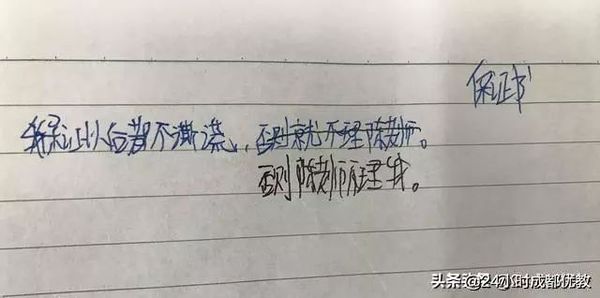 保证书
我保证以后都不撒谎，否则就不理陈老师。
否则陈老师不理我。
头条 @24小时成都优教